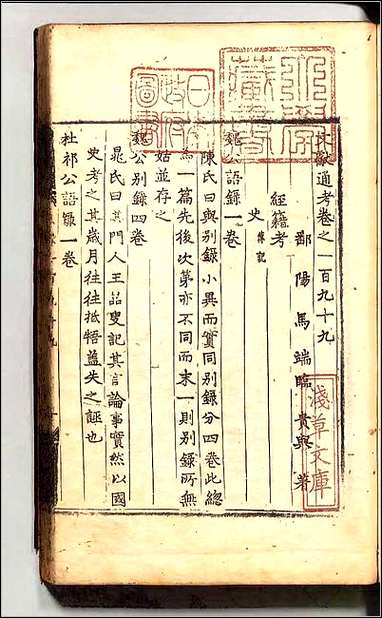 文獻通考卷之一百九十九
鄱陽馬端臨貴與著
經籍考
史 傳記
魏公語錄一卷
陳氏曰與別錄小異而實同別錄分四卷此總
為一篇先後次第亦不同而末一則別錄所無
姑並存之
魏公別錄四卷
晁氏曰其門人王嵓叟記其言論事實然以國
史考之其歲月往往抵牾蓋失之誣也
杜祁公語錄一卷
淺草文庫
日本
圖書
藏書